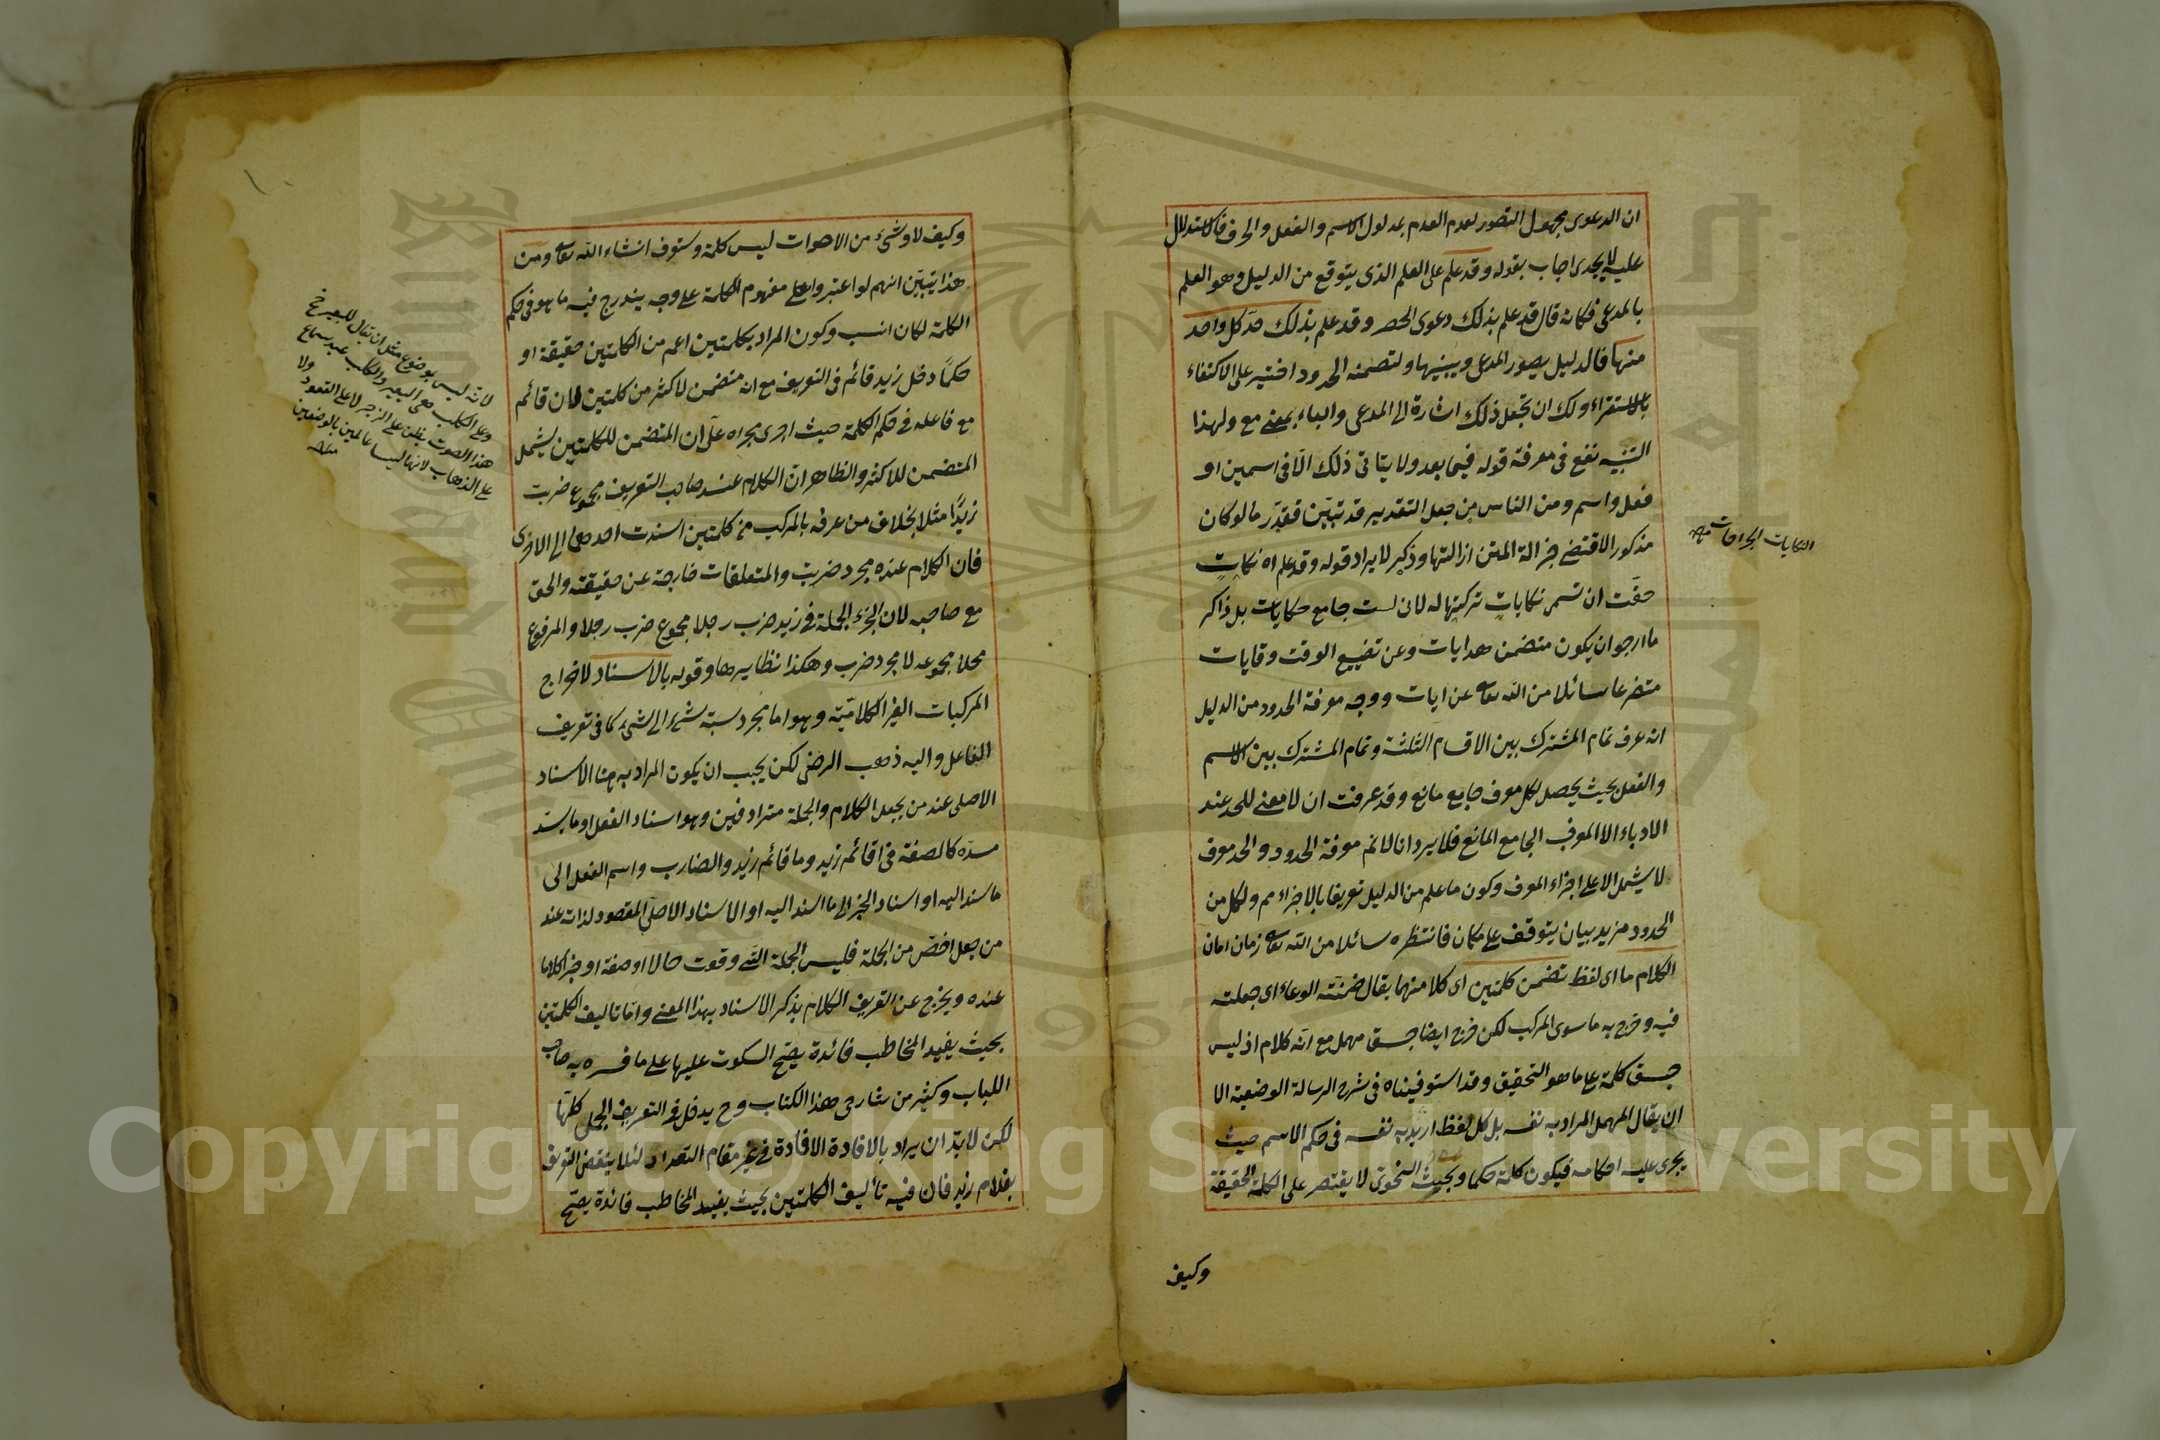 ان الدعوى مجهول التصور لعدم العلم بمدلول الاسم والفعل والحرف فالاستدلال
عليه لا يجدى اجاب بقوله وقد علم على العلم الذى يتوقع من الدليل وهو العلم
بالمدعى فكانه قال قد علم بذلك دعوى الحصر وقد علم بذلك حد كل واحد
منها فالدليل يصور المدعى ويبينها ولتضمنه الحدود اختير على الاكتفاء
بالاستقراء ولك ان تجعل ذلك اشارة الى المدعى والباء بمعنى مع ولهذا
التنبيه نفع فى معرفة قوله فيما بعد ولا يتاتى ذلك الا فى اسمين او
فعل واسم ومن الناس من جعل التقدير قد تبين فقدر ما لو كان
مذكورا لاقتضى جزالة المتن ازالتها وذكر لايراد قوله وقد علم اه نكات
حقت ان تسمى نكايات تركتها له لانى لست جامع حكايات بل ذاكر
ما ارجو ان يكون متضمن هدايات وعن تضييع الوقت وقايات
متضرعا سائلا من الله تعالى عن ايات ووجه معرفة الحدود من الدليل
انه عرف تمام المشترك بين الاقسام الثلثة وتمام المشترك بين الاسم
والفعل بحيث يحصل لكل معرف جامع مانع وقد عرفت ان لا معنى للحد عند
الادباء الا المعرف الجامع المانع فلا يرد انا لا نم معرفة الحدود والحد معرف
لا يشتمل الا على اجزاء المعرف وكون ما علم من الدليل تعريفا بالاجزاء مم ولكل من
الحدود مزيد بيان يتوقف على مكان فانتظره سائلا من الله تعالى زمان امان
الكلام ما اى لفظ تضمن كلمتين اى كلا منهما يقال ضمنته الوعاء اى جعلته
فيه وخرج به ما سوى المركب لكن خرج ايضا جسق مهمل مع انه كلام اذ ليس
جسق كلمة على ما هو التحقيق وقد استوفيناه فى شرح الرسالة الوضعية الا
ان يقال المهمل المراد به نفسه بل كل لفظ اريد به نفسه فى حكم الاسم حيث
يجرى عليه احكامه فيكون كلمة حكما وبحيث النحوى لا يقتصر على الكلمة الحقيقة
وكيف
النكايات الجراحات منه
وكيف لا وشىء من الاصوات ليس كلمة وستوف انشاء الله تعالى ومن
هذا يتبين انهم لو اعتبروا على مفهوم الكلمة على وجه يندرج فيه ما هو فى حكم
الكلمة لكان انسب وكون المراد بكلمتين اعم من الكلمتين حقيقة او
حكما دخل زيد قائم فى التعريف مع انه متضمن لاكثر من كلمتين لان قائم
مع فاعله فى حكم الكلمة حيث اجرى مجراه على ان المتضمن للكلمتين يشمل
المتضمن للاكثر والظاهر ان الكلام عند صاحب التعريف مجموع ضربت
زيدا مثلا بخلاف من عرفه بالمركب من كلمتين اسندت احديهما الى الاخرى
فان الكلام عنده مجرد ضربت والمتعلقات خارجة عن حقيقته والحق
مع صاحبه لان الجزء الجملة فى زيد ضرب رجلا مجموع ضرب رجلا والمرفوع
محلا مجموعه لا مجرد ضرب وهكذا نظايرها وقوله بالاسناد لاخراج
المركبات الغير الكلامية وهو اما مجرد نسبة شىء الى الشىء كما فى تعريف
الفاعل واليه ذهب الرضى لكن يجب ان يكون المراد به هنا الاسناد
الاصلى عند من يجعل الكلام والجملة مترادفين وهو اسناد الفعل او ما يسد
مسده كالصفة فى اقائم زيد وما قائم زيد والضارب واسم الفعل الى
ما سند اليه او اسناد الخبر الى ما اسند اليه او الاسناد الاصلى المقصود لذاته عند
من جعل اخص من الجملة فليس الجملة التى وقعت حالا او صفة او خبرا كلاما
عنده ويخرج عن التعريف الكلام بذكر الاسناد بهذا المعنى واما تاليف الكلمتين
بحيث يفيد المخاطب فائدة يصح السكوت عليها على ما فسره به صاحب
اللباب وكثير من شارحى هذا الكتاب وح يدخل فى التعريف الجمل كلها
لكن لابد ان يراد بالافادة الافادة فى غير مقام التعداد لئلا ينقض التعريف
بغلام زيد فان فيه تأليف الكلمتين بحيث يفيد المخاطب فائدة يصح
لانه ليس بموضوع مثل ان يقال للبعير نخ
وعلى الكلب معى البعير والكلب عند سماع
هذا الصوت يظن على الزجر لا على القعود ولا
على الذهاب لانها ليسا عالمين بالوضعين
منه